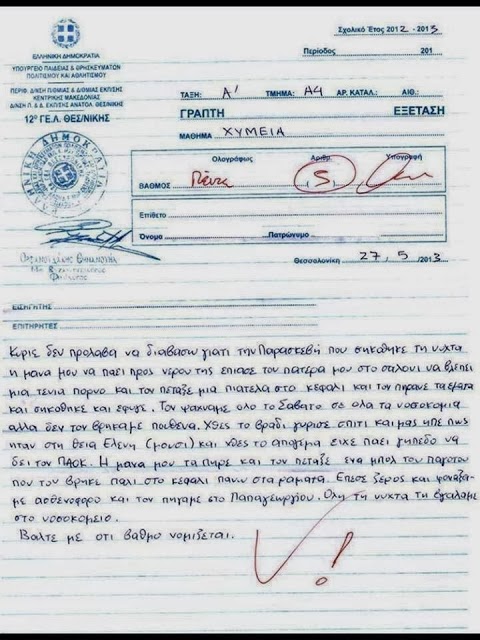 Σχολικό Έτος 2012 - 2013
Περίοδος 201
ΕΛΛΗΝΙΚΗ ΔΗΜΟΚΡΑΤΙΑ
ΥΠΟΥΡΓΕΙΟ ΠΑΙΔΕΙΑΣ & ΘΡΗΣΚΕΥΜΑΤΩΝ
ΠΟΛΙΤΙΣΜΟΥ ΚΑΙ ΑΘΛΗΤΙΣΜΟΥ
ΠΕΡΙΦ. ΔΙΝΣΗ Π/ΘΜΙΑΣ & Δ/ΘΜΙΑΣ ΕΚΠ/ΣΗΣ
ΚΕΝΤΡΙΚΗΣ ΜΑΚΕΔΟΝΙΑΣ
Δ/ΝΣΗ Π. & Δ.Ε. ΕΚΠ/ΣΗΣ ΑΝΑΤΟΛ. ΘΕΣ/ΝΙΚΗΣ
12º ΓΕ.Λ. ΘΕΣ/ΝΙΚΗΣ
ΤΑΞΗ: Α' ΤΜΗΜΑ: Α4 ΑΡ. ΚΑΤΑΛ.: ΑΙΘ.:
ΓΡΑΠΤΗ ΕΞΕΤΑΣΗ
ΜΑΘΗΜΑ ΧΥΜΕΙΑ
Ολογράφως Αριθμ. Υπογραφή
ΒΑΘΜΟΣ Πέντε 5
Επίθετο
Όνομα Πατρώνυμο
Θεσσαλονίκη 27, 5 /2013
ΕΛΛΗΝΙΚΗ ΔΗΜΟΚΡΑΤΙΑ
ΕΙΣΗΓΗΤΗΣ
ΕΠΙΤΗΡΗΤΕΣ
Κυριε δεν προλαβα να διαβασω γιατι την Παρασκεβή που σηκοθηκε τη νυχτα
η μανα μου να παει προς νερου της επιασε τον πατερα μου στο σαλονι να βλεπει
μια τενια πορνο και τον πεταξε μια πιατελα στο κεφαλι και τον πηρανε τα εματα
και σηκοθηκε και εφυγε. Τον ψαχναμε ολο το Σαβατο σε ολα τα νοσοκομια
αλλα δεν τον βρηκαμε πουθενα. Χθες το βραδι γυρισε σπιτι και μας ηπε πως
ηταν στη θεια Ελενη (μουσι) και χθες το απογεμα ειχε παει γηπεδο να
δει τον ΠΑΟΚ. Η μανα μου τα πηρε και τον πεταξε ενα μπολ του παγοτου
που τον βρηκε παλι στο κεφαλι πανω στα ραματα. Επεσε ξερος και φοναξα-
με ασθενοφορο και τον πηγαμε στο Παπαγεωργιου. Ολη τη νυχτα τη βγαλαμε
στο νοσοκομειο.
Βαλτε με οτι βαθμο νομιζεται.
!